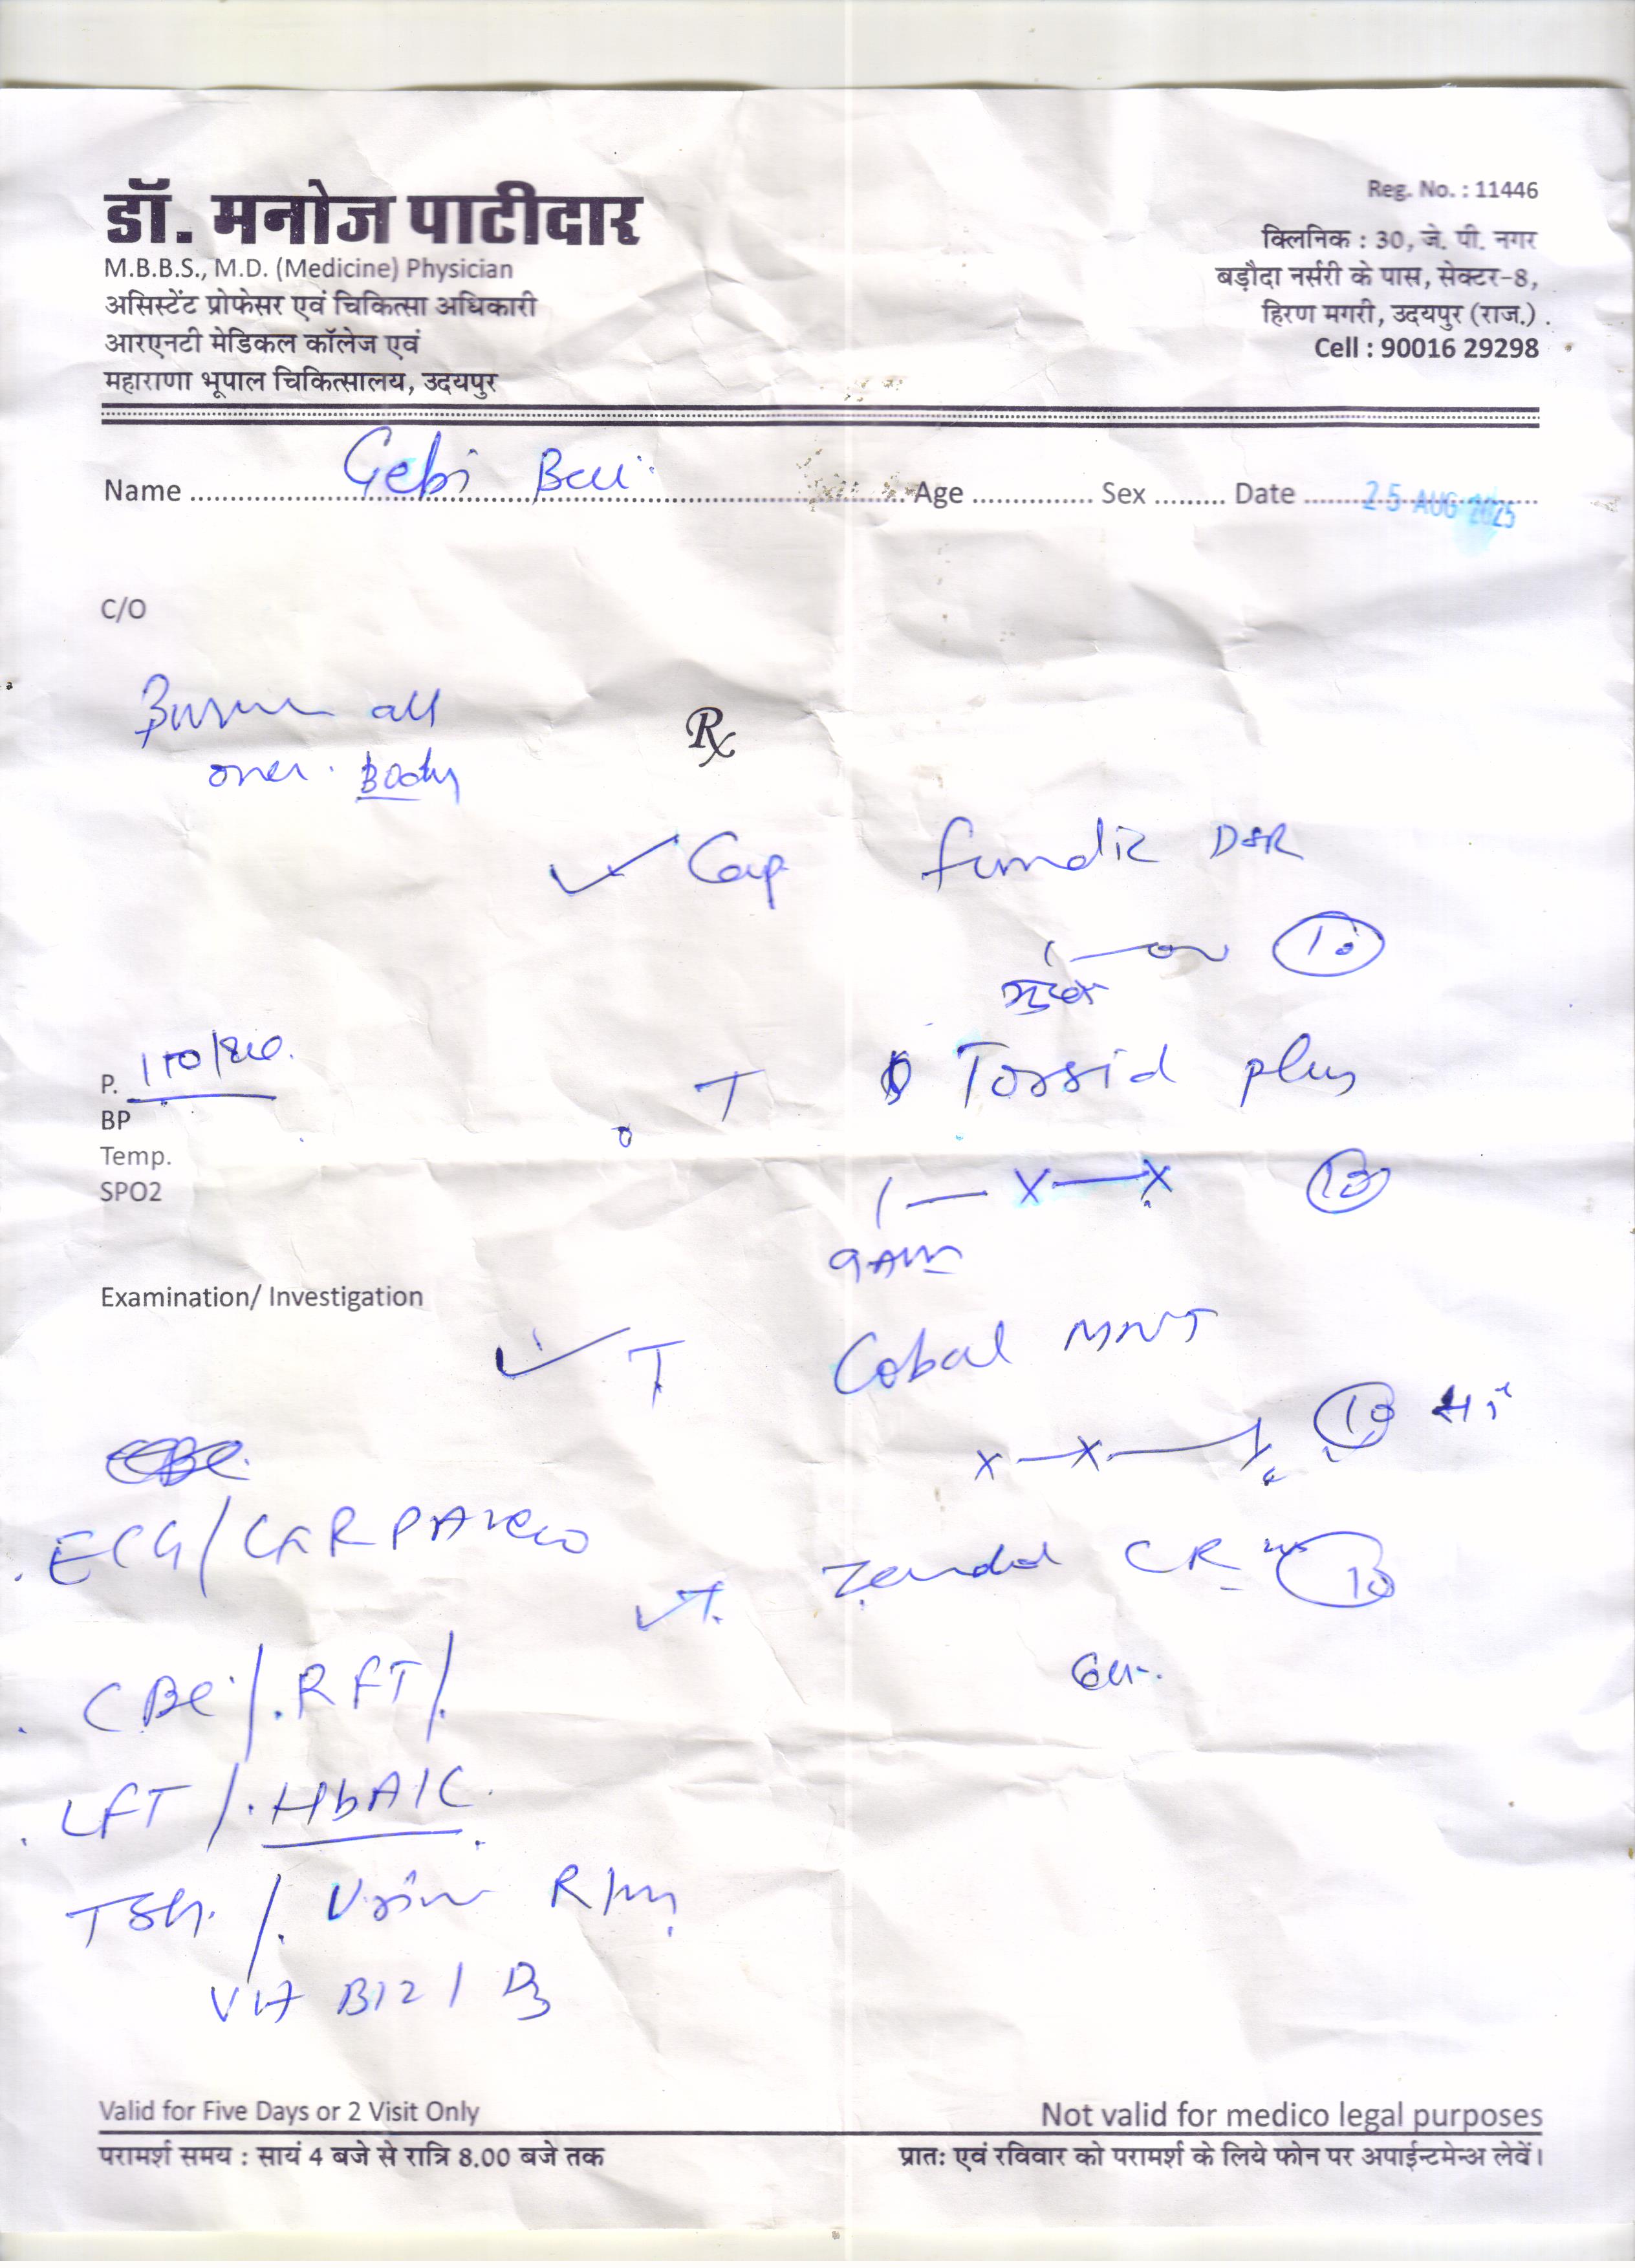 डॉ. मनोज पाटीदार
M.B.B.S., M.D. (Medicine) Physician
असिस्टेंट प्रोफेसर एवं चिकित्सा अधिकारी
आरएनटी मेडिकल कॉलेज एवं
महाराणा भूपाल चिकित्सालय, उदयपुर
Reg. No. : 11446
क्लिनिक : 30, जे. पी. नगर
बड़ौदा नर्सरी के पास, सेक्टर-8,
हिरण मगरी, उदयपुर (राज.)
Cell : 90016 29298
Name Gebi Bai Age Sex Date 25 AUG 2025
C/O
all
over Body
Rx
Cap DSR
1 10
P.
BP
Temp.
SPO2
T plus
1 — X — X 10
9 AM
Examination/ Investigation
T Cobal
X — X — 1 10
ECG/
T. CR 10
CBC/. RFT/.
LFT /. HbA1C.
TSH. /. Urine R/m
Vit B12 / D3
Valid for Five Days or 2 Visit Only
Not valid for medico legal purposes
परामर्श समय : सायं 4 बजे से रात्रि 8.00 बजे तक
प्रातः एवं रविवार को परामर्श के लिये फोन पर अपाईन्टमेन्अ लेवें।